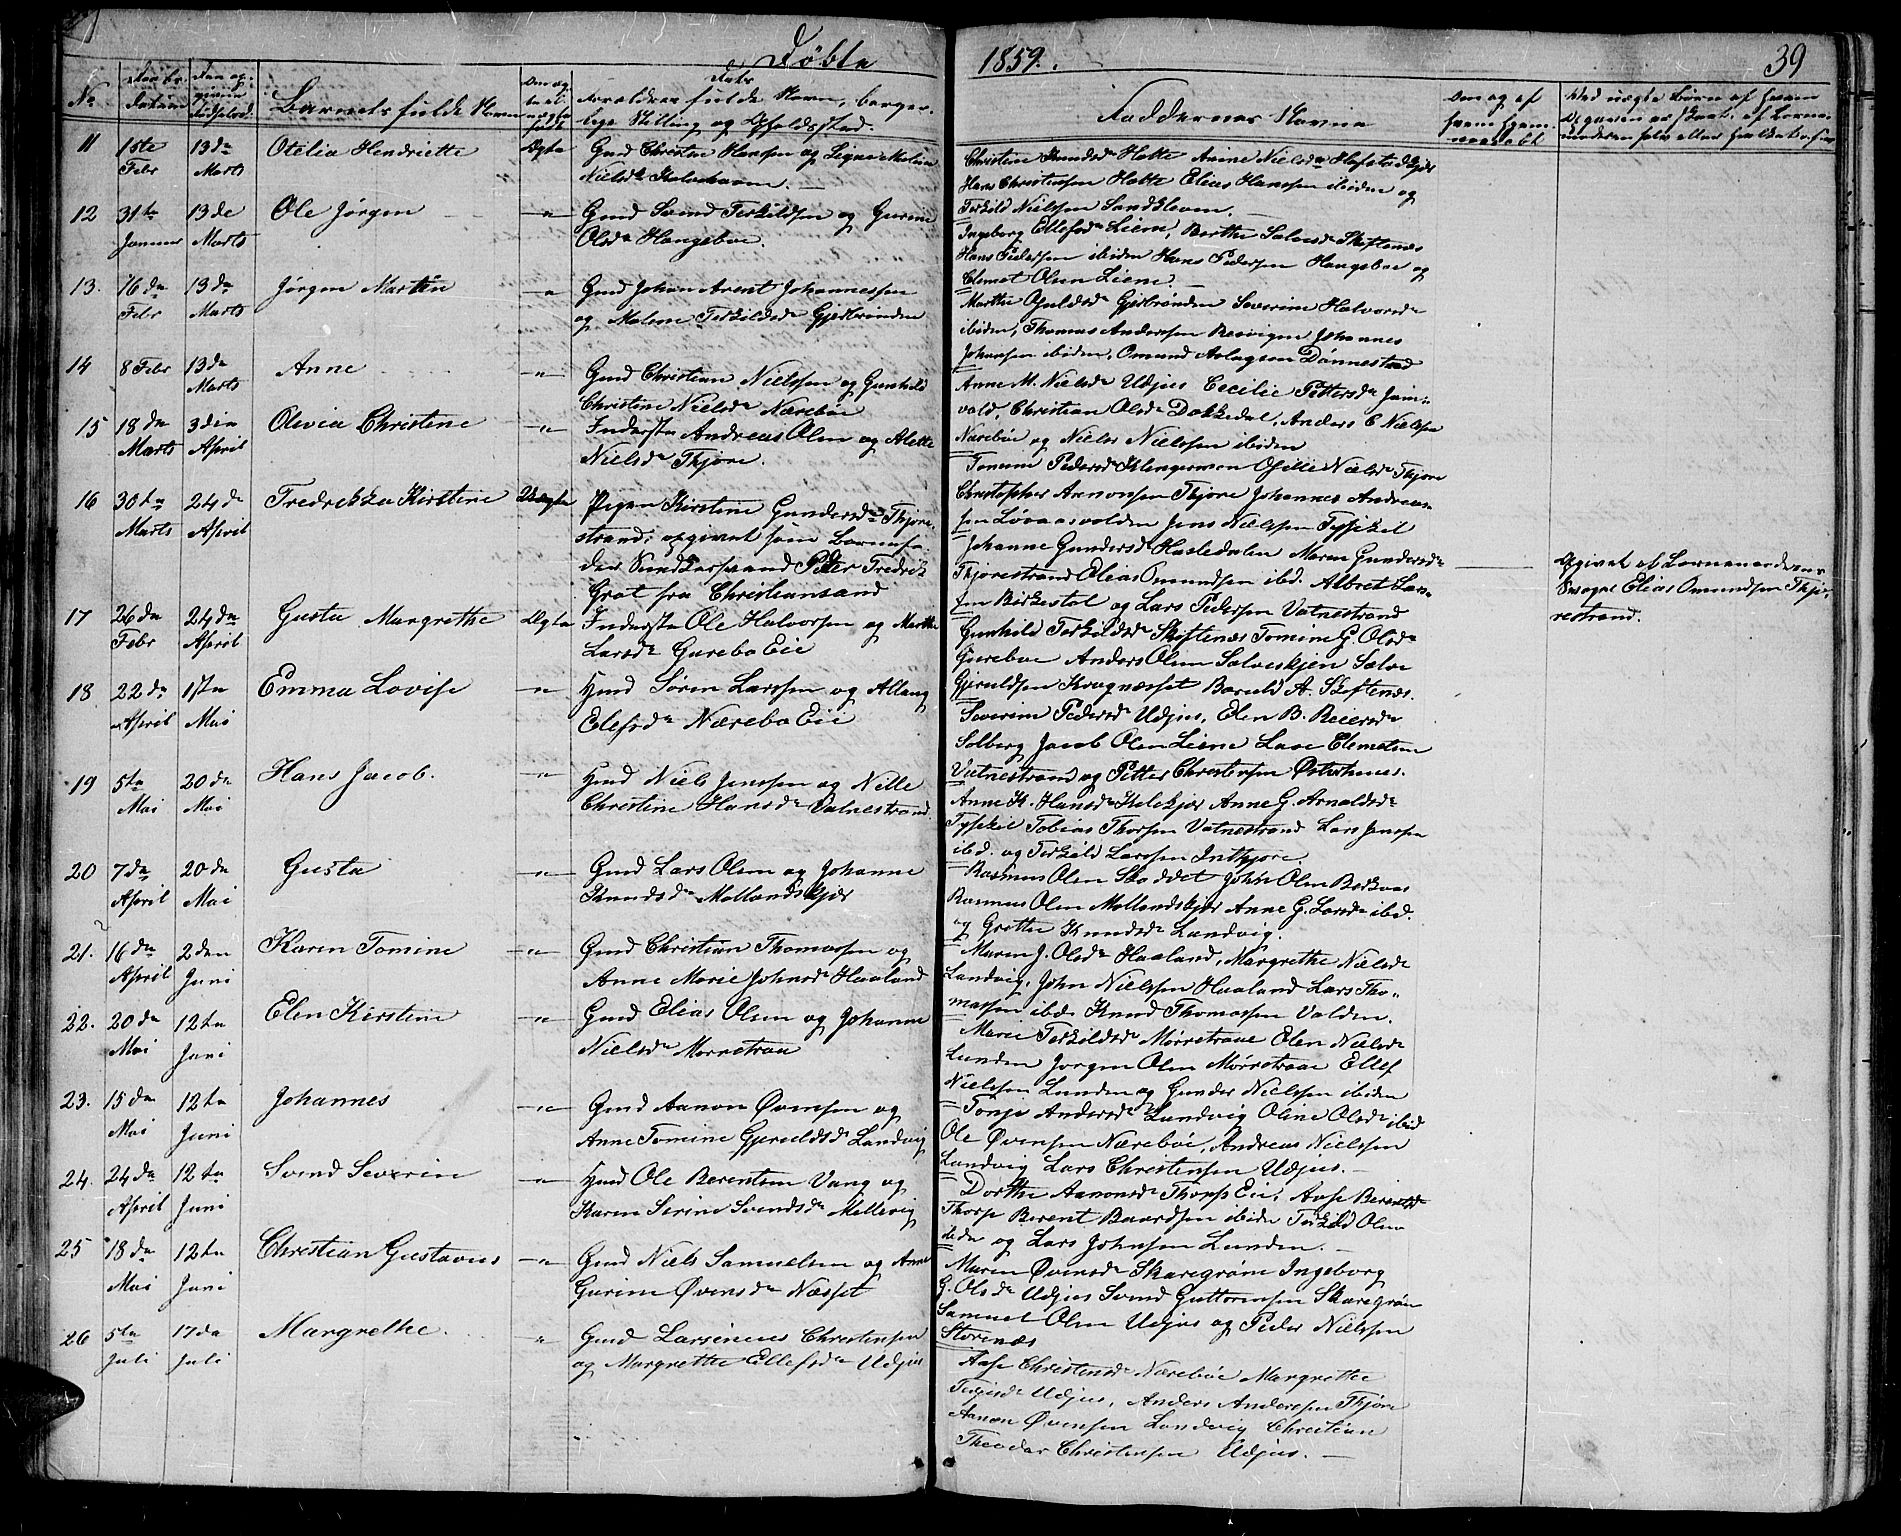 Døbte
1859.
39
No
Barnets fulde Navn
Faddernes Navne
11
1ste
Febr
13de
Marts
Otelia Henriette
Ægte
Gmd Christen Hansen og
Nielsdr
Christine Knudsdr Hatte Anine Nielsdr
Hans Christensen Hatte Elias Hanssen ibiden og
Terkild Nielssen Sandkleven.
12
31te
Januar
13de
Marts
Ole Jørgen
Gmd Svend Terkildsen og Gurine
Olsdr Haugeboe.
Ingeborg Ellefsdr Liene, Berthe Salvesdr Skiftenæs
Hans Pedersen ibiden Hans Pedersen Haugeboe og
Clemet Olsen Liene.
13.
16de
Febr
13de
Marts
Jørgen Martin
Gmd Johan Arent Johannessen
og Malene Terkildsdr Gjedbrønden
Marthe Gjedbrønden Severine Halvorsdr
ibiden, Thomas Anderssen Resvigen Johannes
Johansen ibiden, Omund Aslagsen Dønnestad
14
8 Febr
13de
Marts
Anne
Gmd Christian Nielssen og Gunhild
Christine Nielsdr Nærebøe
Anne M. Nielsdr Udjus Cecilie Pettersdr Jam-
vold, Christian Olsdr Dokkedal, Anders E Nielsen
Nærebøe og Niels Nielssen ibiden
15
18de
Marts
3die
April
Olevia Christine
Inderste Andreas Olsen og Alette
Nielsdr Thjore.
Tomine Pedersdr Klingermoen Nielsdr Thjore
Christopher Aanonsen Thjore Johannes Andreas-
sen Løvaasvolden Jens Nielssen Tyssekil
16
30te
Marts
24de
April
Fredrikka Kirstine
Uægte
Pigen Kirstine Gundersdr Thjore-
strand; opgivet som Barnefa-
der Peder Fredrik
Grot fra Christiansand
Johanne Gundersdr Hasledalen Maren Gundersdr
Thjorestrand Elias Omundsen ibd. Albret Lar-
sen Birkestøl og Lars Pedersen Vatnestrand
Opgivet af Barnemoderens
Svoger Elias Omundsen Thjo-
restrand.
17
26de
Febr
24de
April
Gusta Margrethe
Ægte
Inderste Ole Halvorsen og Marthe
Larsdr Gurebo Eie
Gunhild Terkildsdr Skiftenæs Tomine G. Olsdr
Gurebøe Anders Olsen Salveskjen Salve
Gjeruldsen Kragnæsset Baruld A. Skiftenæs.
18
22de
April
1ste
Mai
Emma Lovise
Hmd Søren Larssen og Allaug
Ellefsdr Nærebo Eie
Severine Pedersdr Udjus, Elen B. Reiersdr
Solberg Jacob Olsen Liene Lars Clemetsen
Vatnestrand og Petter Christensen
19
5te
Mai
20de
Mai
Hans Jacob.
Hmd Niels Jenssen og Nille
Christine Hansdr Vatnestrand
Anne K. Hansdr Anne G. Arnoldsdr
Tysskil Tobias Thorsen Vatnestrand Lars Jenssen
ibd. og Terkild Larssen Inthjore.
20
7de
April
20de
Mai
Gusta
Gmd Lars Olsen og Johanne
Knudsdr Mollandskjær
Rasmus Olsen Skaddet John Olsen
Rasmus Olsen Mollandskjær Anne G. Larsdr ibd.
og Grethe Knudsdr Landvig.
21.
16de
April
2den
Juni
Karen Tomine
Gmd Christian Thomassen og
Anne Marie Johnsdr Haaland
Maren J. Olsdr Haaland, Margrethe Nielsdr
Landvig, John Nielssen Haaland Lars Tho-
massen ibd. Knud Thomassen Valden.
22.
20de
Mai
12te
Juni
Elen Kirstine
Gmd Elias Olsen og Johanne
Nielsdr Morretraa
Marie Terkildsdr Mørretraae Elen Nielsdr
Lunden Jørgen Olsen Mørretraae Ellef
Nielssen Lunden og Gunder Nielssen ibiden
23.
15de
Mai
12te
Juni
Johannes
Gmd Aanon Øvensen og
Anne Tomine Gjeruldsdr Landvig
Tonje Andersdr Landvig Oline Olsdr ibid
Ole Øvensen Nærebøe, Andreas Nielssen
Landvig Lars Christensen Udjus.
24.
24de
April
12te
Juni
Svend Severin
Hmd Ole Berentsen Vang og
Karen Serine Svendsdr Mollevig
Dorthe Aanonsdr Thorp Eie, Aase Berentsdr
Thorp Berent Baardsen ibiden Terkild Olsen
ibiden og Lars Johnsen Lunden.
25
18de
Mai
12te
Juni
Christian Gustavus
Gmd Niels Samuelsen og Anne
Gurine Øvensdr Næsset
Maren Øvensdr Skaregrøm Ingeborg
G. Olsdr Udjus Svend Guttormsen Skaregrøm
Samuel Olsen Udjus og Peder Nielssen
Storenæs
26
5te
Juli
17de
Juli
Margrethe.
Gmd Larsenius Christensen
og Margrethe Ellefsdr Udjus
Aase Christensdr Nærebøe Margrethe
Udjus, Anders Anderssen Thjore
Aanon Øvensen Landvig Christian
Theodor Christensen Udjus.